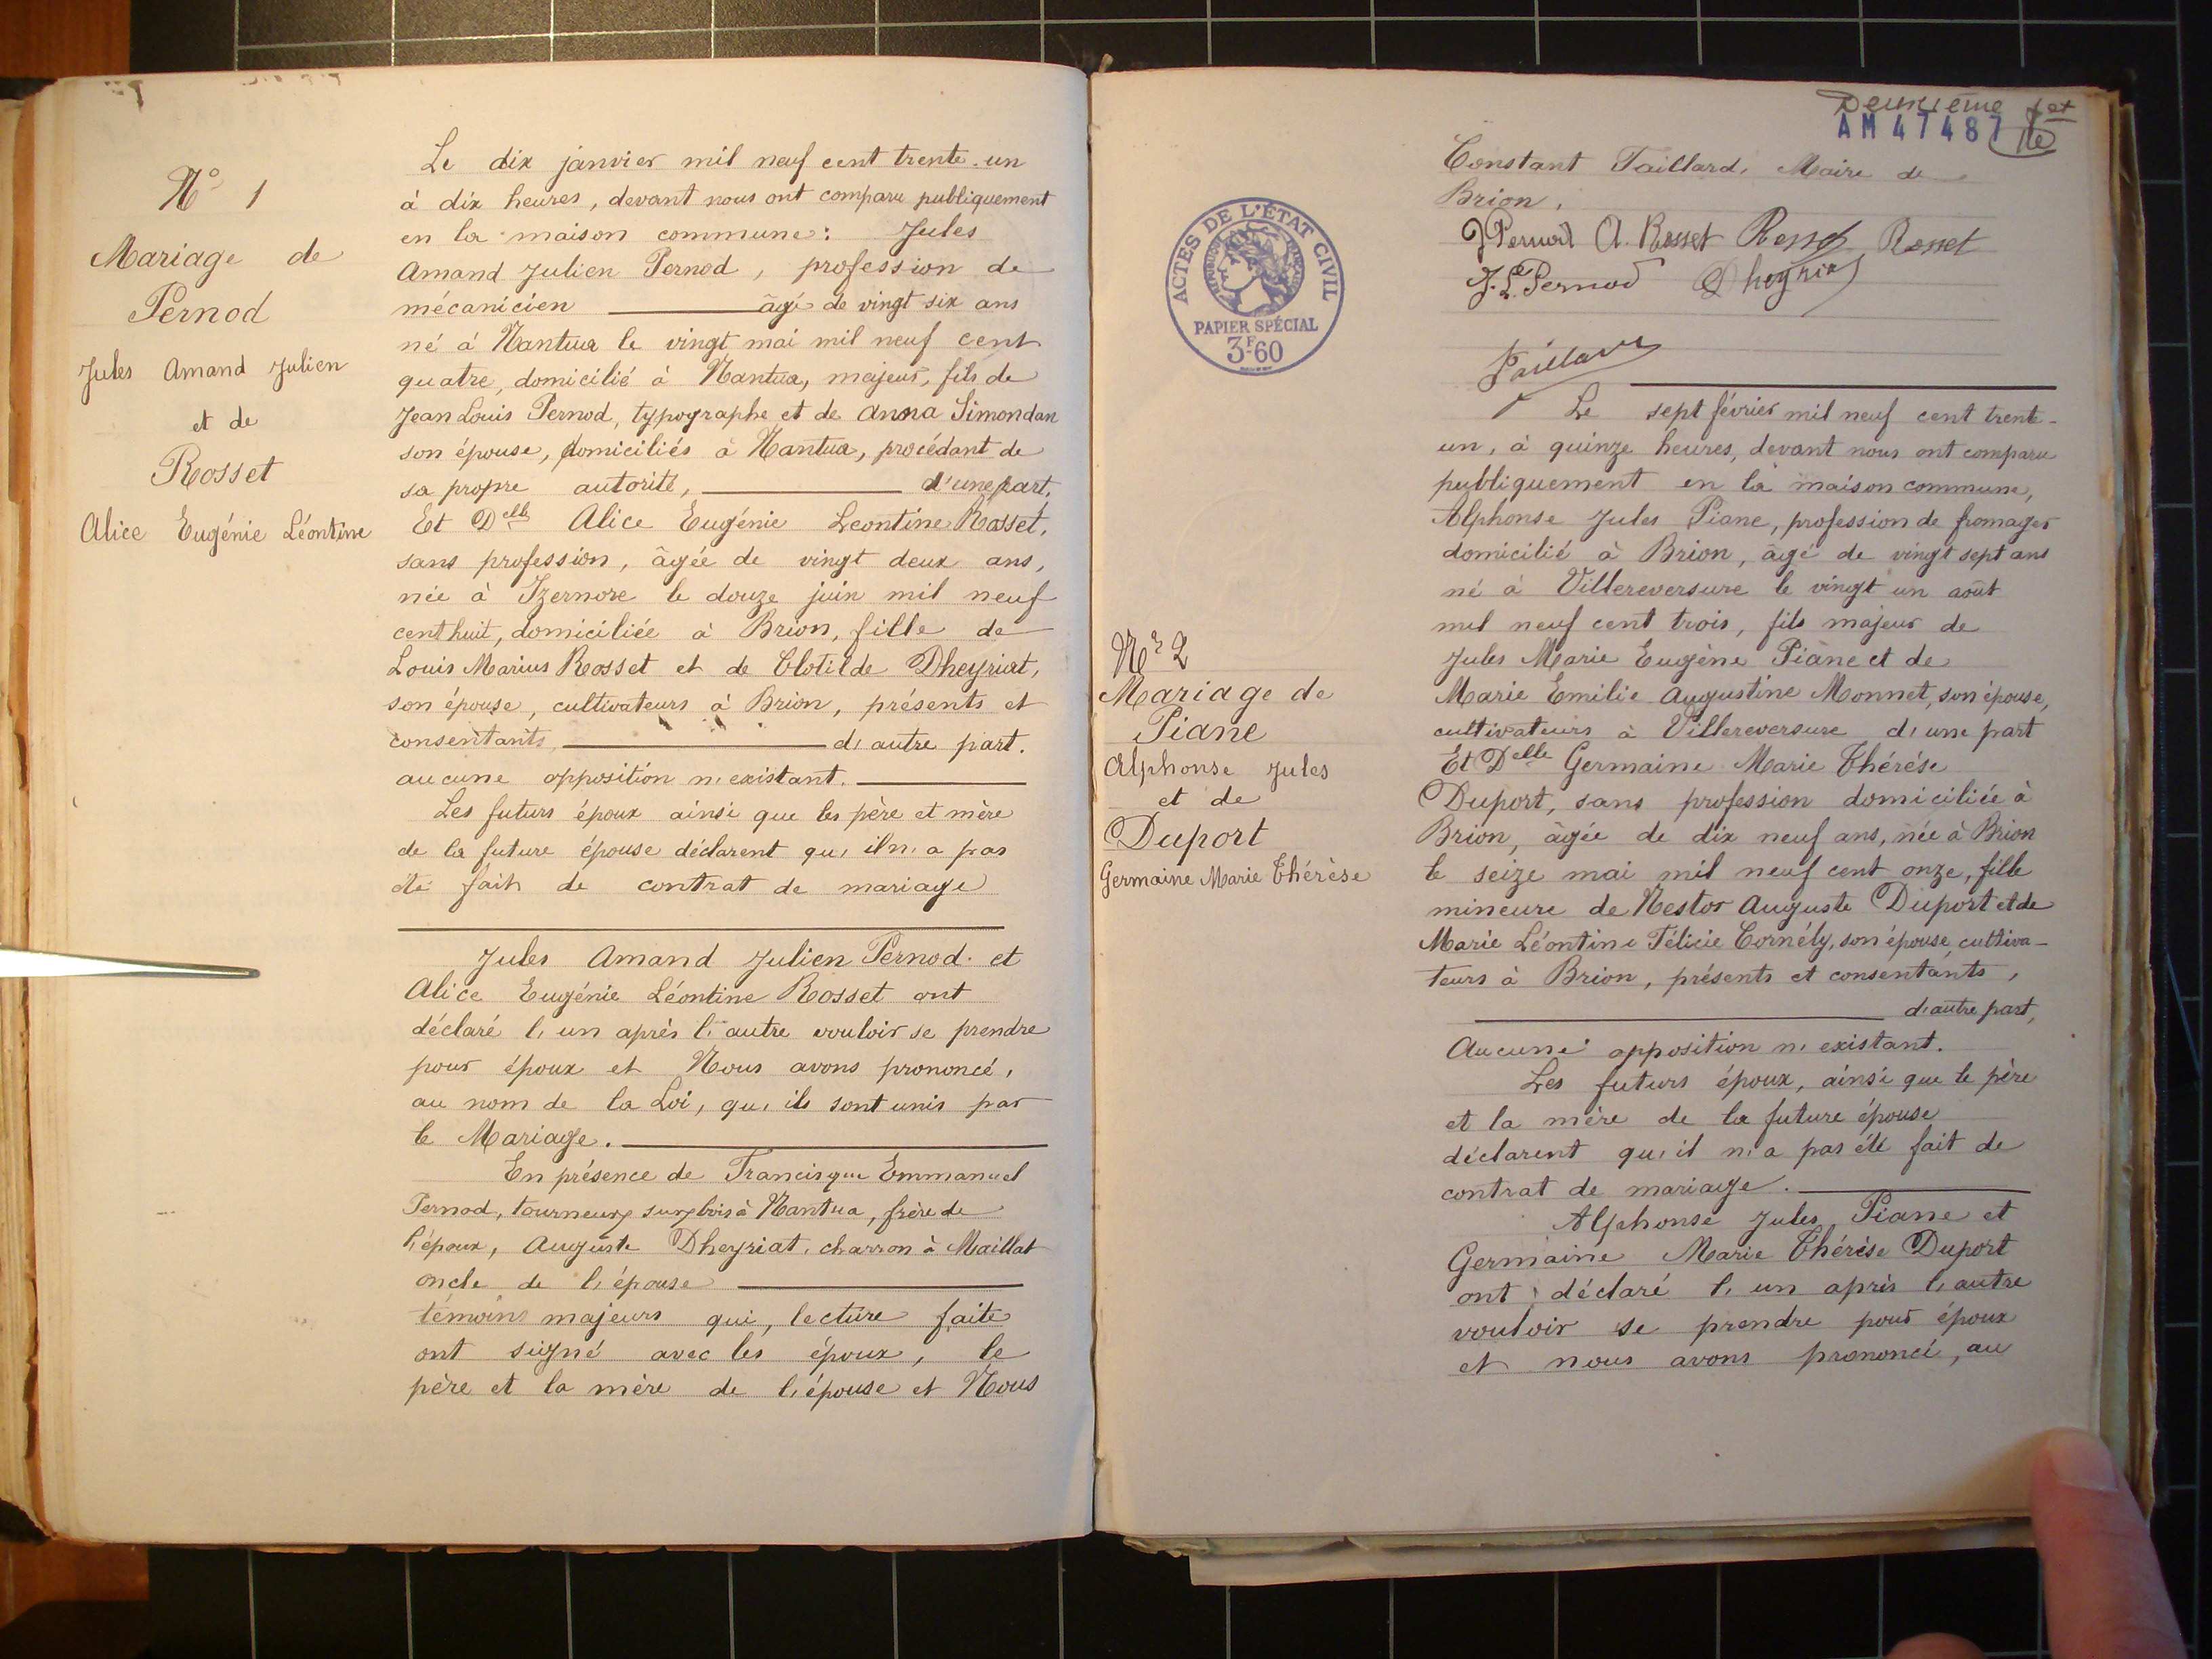 N° 1
Mariage de
Pernod
Jules Amand Julien
et de
Rosset
Alice Eugénie Léontine
Le dix janvier mil neuf cent trente-un
à dix heures, devant nous ont comparu publiquement
en la maison commune : Jules
Amand Julien Pernod, profession de
mécanicien âgé de vingt six ans
né à Nantua le vingt mai mil neuf cent
quatre, domicilié à Nantua, majeur, fils de
Jean Louis Pernod, typographe et de Anna Simondan
son épouse, domiciliés à Nantua, procédant de
sa propre autorité, d'une part,
Et Delle Alice Eugénie Leontine Rosset,
sans profession, âgée de vingt deux ans,
née à Izernore le douze juin mil neuf
cent huit, domiciliée à Brion, fille de
Louis Marius Rosset et de Clotilde Dheyriat,
son épouse, cultivateurs à Brion, présents et
consentants, d'autre part.
aucune opposition n'existant.
Les futurs époux ainsi que les père et mère
de la future épouse déclarent qu'il n'a pas
été fait de contrat de mariage
Jules Amand Julien Pernod et
Alice Eugénie Léontine Rosset ont
déclaré l'un après l'autre vouloir se prendre
pour époux et Nous avons prononcé,
au nom de la Loi, qu'ils sont unis par
le Mariage.
En présence de Francisque Emmanuel
Pernod, tourneur sur bois à Nantua, frère de
l'époux, Auguste Dheyriat, charron à Maillat
oncle de l'épouse
témoins majeurs qui, lecture faite
ont signé avec les époux, le
père et la mère de l'épouse et Nous
Deuxième
AM 47487
Constant Taillard, Maire de
Brion,
J Pernod A. Rosset Rosset Rosset
J. L. Pernod Dheyriat
Taillard
ACTES DE L'ÉTAT CIVIL
PAPIER SPÉCIAL
3F60
N° 2
Mariage de
Piane
Alphonse Jules
et de
Duport
Germaine Marie Thérèse
Le sept février mil neuf cent trente-
un, à quinze heures, devant nous ont comparu
publiquement en la maison commune,
Alphonse Jules Piane, profession de fromager
domicilié à Brion, âgé de vingt sept ans
né à Villereversure le vingt un août
mil neuf cent trois, fils majeur de
Jules Marie Eugène Piane et de
Marie Emilie Augustine Monnet, son épouse,
cultivateurs à Villereversure d'une part
Et Delle Germaine Marie Thérése
Duport, sans profession domiciliée à
Brion, âgée de dix neuf ans, née à Brion
le seize mai mil neuf cent onze, fille
mineure de Nestor Auguste Duport et de
Marie Léontine Félicie Cornély, son épouse, cultiva-
teurs à Brion, présents et consentants,
d'autre part,
Aucune opposition n'existant.
Les futurs époux, ainsi que le père
et la mère de la future épouse
déclarent qu'il n'a pas été fait de
contrat de mariage.
Alphonse Jules Piane et
Germaine Marie Thérèse Duport
ont déclaré l'un après l'autre
vouloir se prendre pour époux
et nous avons prononcé, au